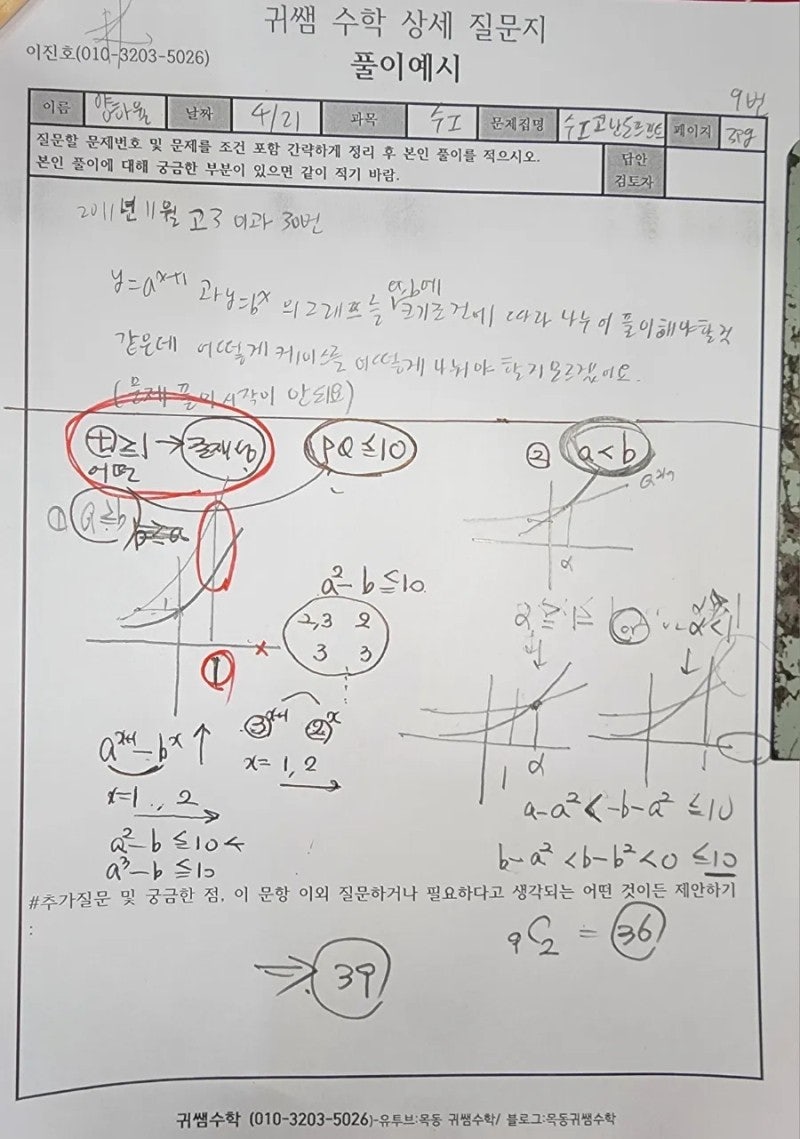 귀쌤 수학 상세 질문지
이진호(010-3203-5026)
풀이예시
9번
이름 날짜 4/21 과목 수I 문제집명 수I고난도프린트 페이지 39
질문할 문제번호 및 문제를 조건 포함 간략하게 정리 후 본인 풀이를 적으시오.
본인 풀이에 대해 궁금한 부분이 있으면 같이 적기 바람.
답안
검토자
2011년 11월 고3 이과 30번
a, b에
y=a^{x+1} 과 y=b^x 의 그래프를 크기조건에 따라 나누어 풀이해야할것
같은데 어떻게 케이스를 어떻게 나눠야 할지 모르겠어요.
(문제 풀이 시작이 안되요)
t≥1 → 존재성
어떤
PQ≤10
② a<b
① a≥b
a^{x+1}
α
1
a²-b≤10
2,3 2
3 3
or
1 α
1
a^{x+1}-b^x ↑
③^{x+1} ②^x
x=1, 2
x=1, 2
a²-b≤10
a³-b≤10
b-a²<b-b²<0≤10
#추가질문 및 궁금한 점, 이 문항 이외 질문하거나 필요하다고 생각되는 어떤 것이든 제안하기
:
₉C₂ = 36
⇒ 39
귀쌤수학 (010-3203-5026)-유투브:목동 귀쌤수학/ 블로그:목동귀쌤수학